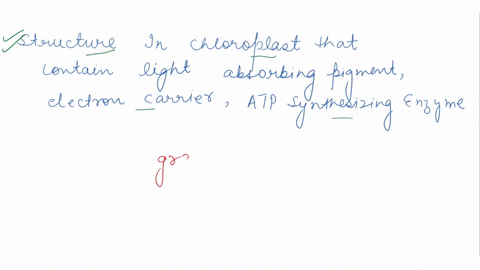 structure In chloroplast that
contain light absorbing pigment,
electron carrier, ATP synthesizing Enzyme
gr